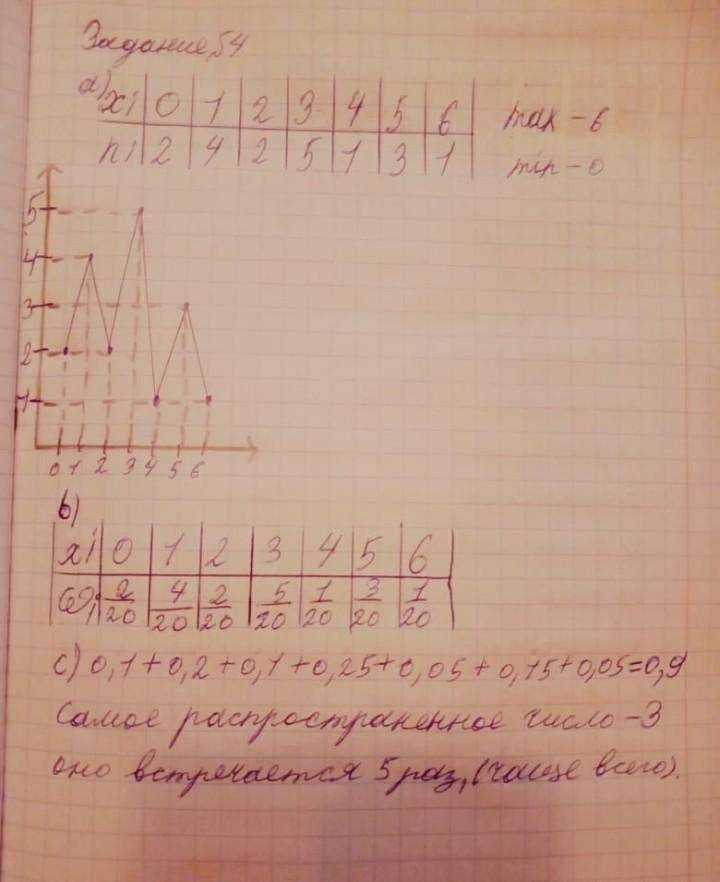 Задание 54
a)
xi | 0 | 1 | 2 | 3 | 4 | 5 | 6 max - 6
ni | 2 | 4 | 2 | 5 | 1 | 3 | 1 min - 0
5
4
3
2
1
0 1 2 3 4 5 6
b)
xi | 0 | 1 | 2 | 3 | 4 | 5 | 6
ωi | 2/20 | 4/20 | 2/20 | 5/20 | 1/20 | 3/20 | 1/20
c) 0,1+0,2+0,1+0,25+0,05+0,15+0,05=0,9
Самое распространенное число -3
оно встречается 5 раз, (чаще всего).